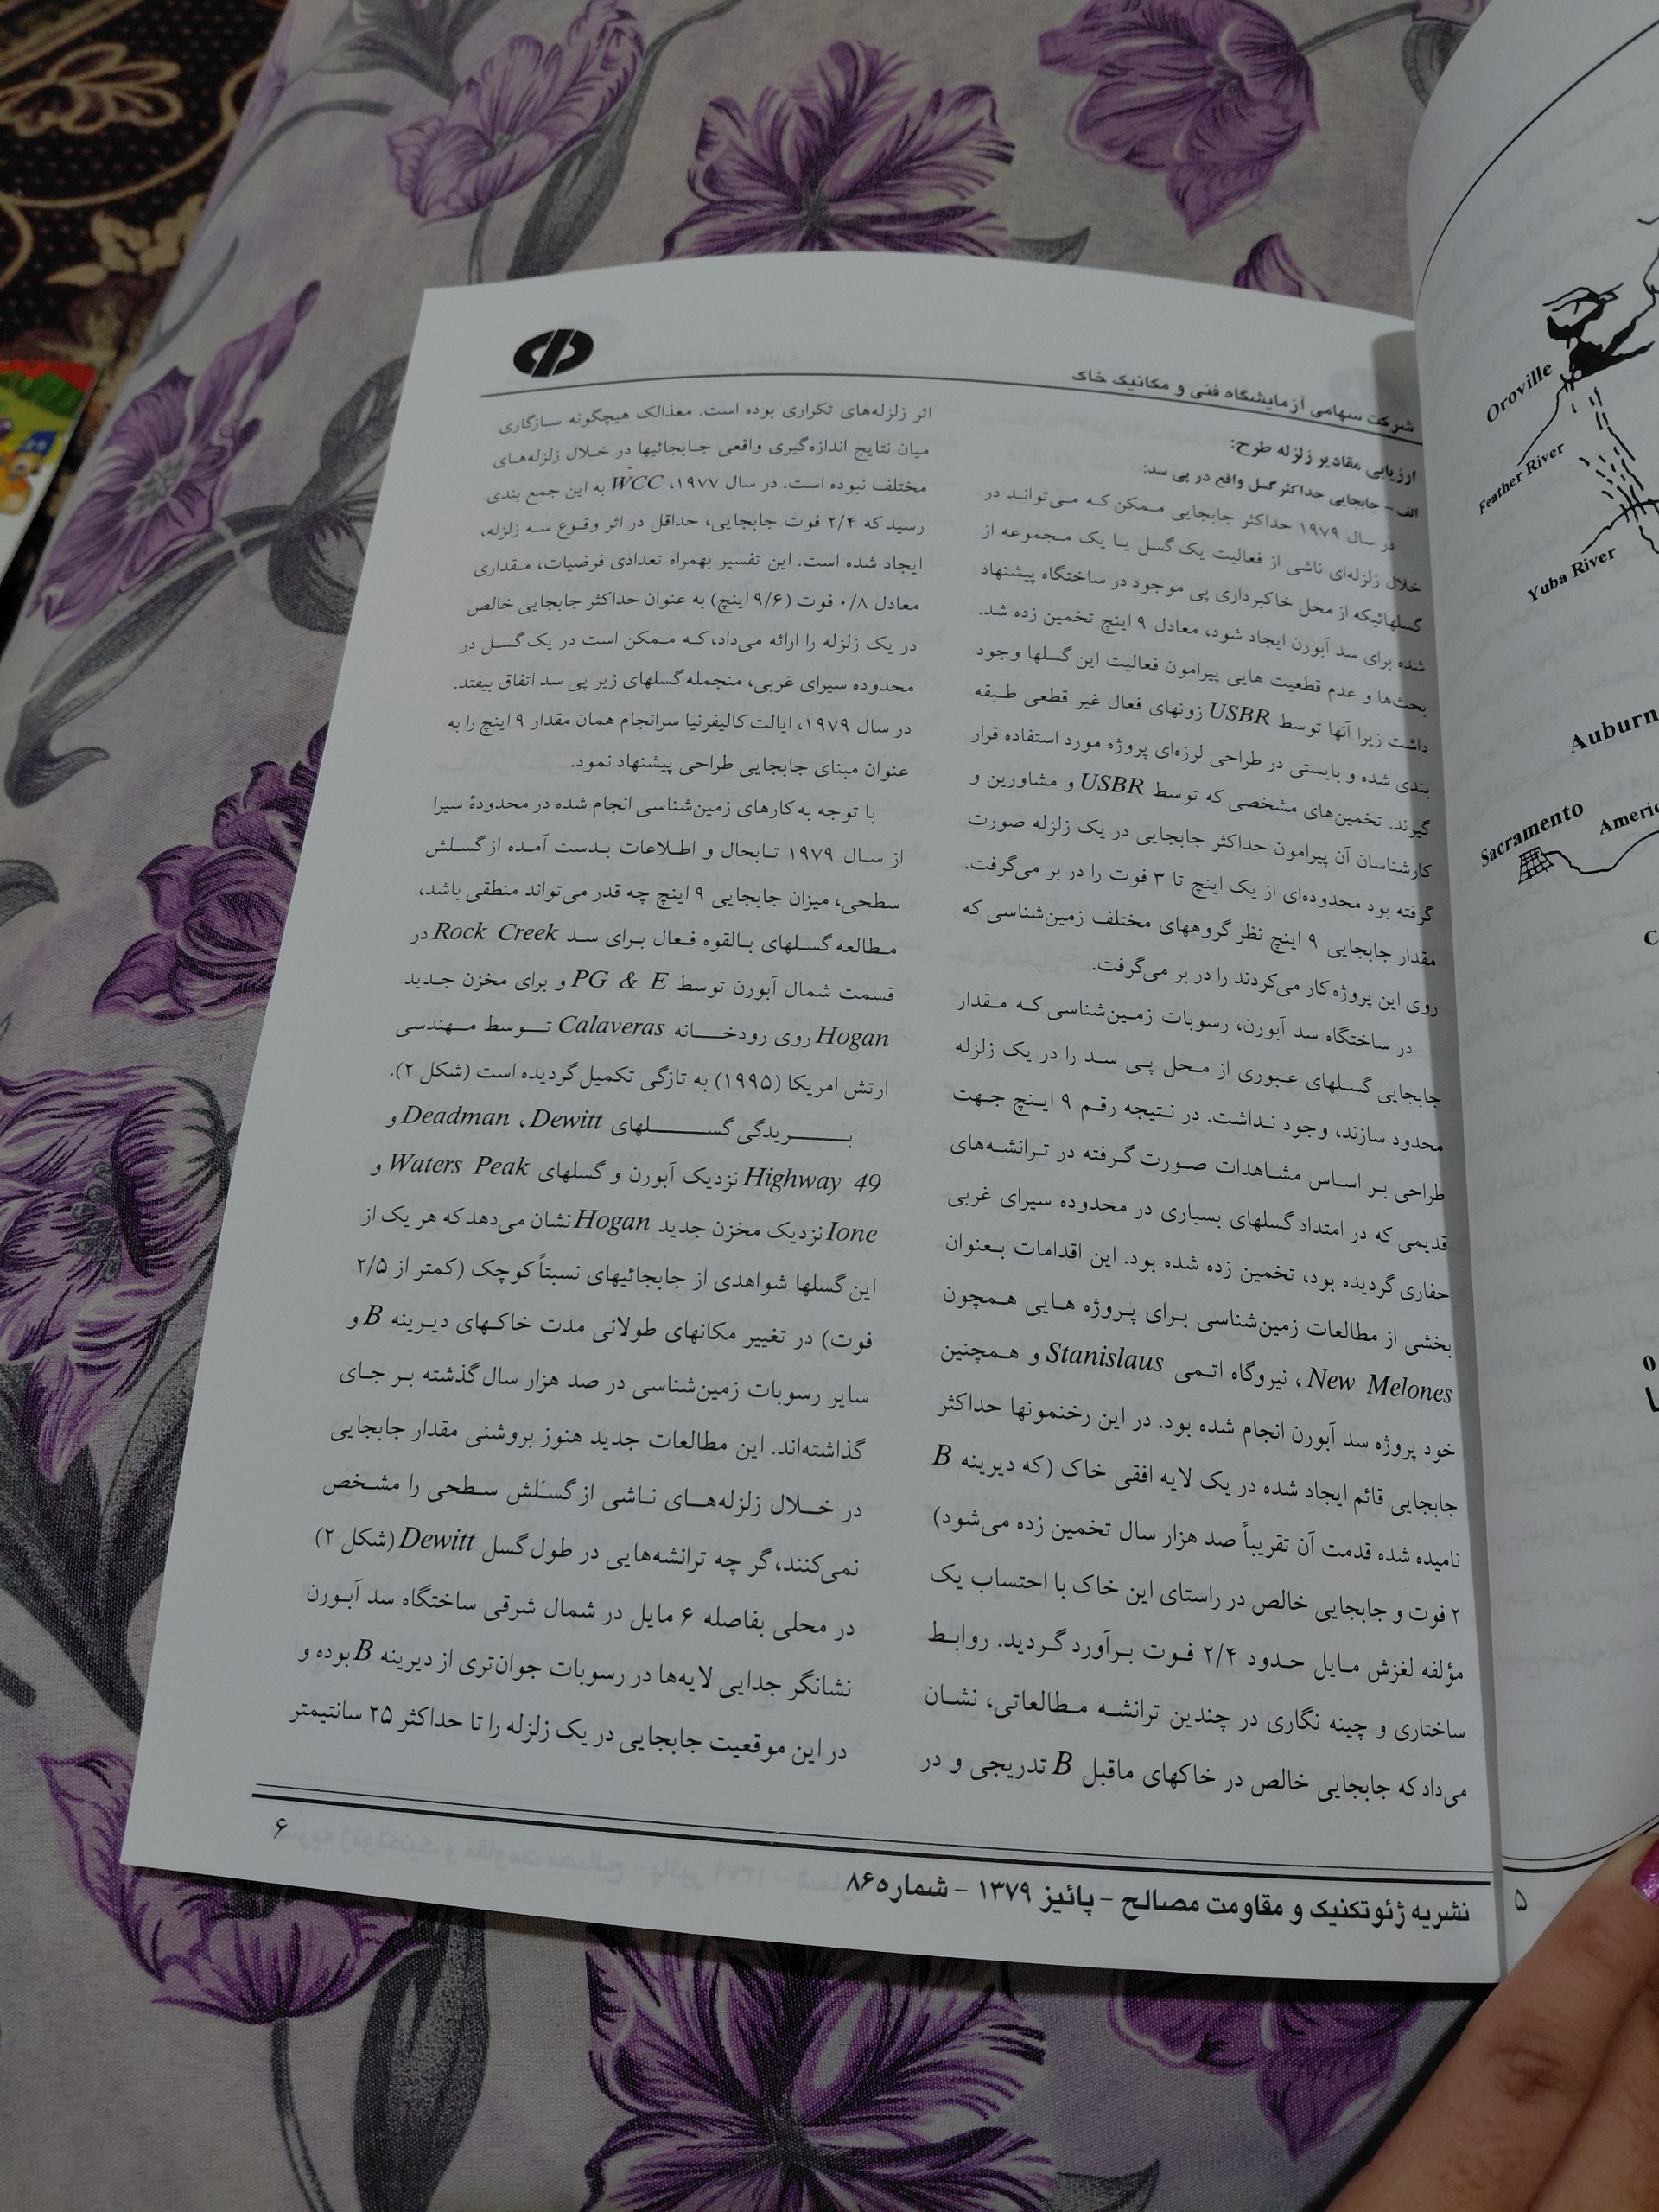 شرکت سهامی آزمایشگاه فنی و مکانیک خاک
ارزیابی مقادیر زلزله طرح:
الف - جابجایی حداکثر گسل واقع در پی سد:
در سال ۱۹۷۹ حداکثر جابجایی ممکن که می‌تواند در
خلال زلزله‌ای ناشی از فعالیت یک گسل یا یک مجموعه از
گسلهائیکه از محل خاکبرداری پی موجود در ساختگاه پیشنهاد
شده برای سد آبورن ایجاد شود، معادل ۹ اینچ تخمین زده شد.
بحث‌ها و عدم قطعیت هایی پیرامون فعالیت این گسلها وجود
داشت زیرا آنها توسط USBR زونهای فعال غیر قطعی طبقه
بندی شده و بایستی در طراحی لرزه‌ای پروژه مورد استفاده قرار
گیرند. تخمین‌های مشخصی که توسط USBR و مشاورین و
کارشناسان آن پیرامون حداکثر جابجایی در یک زلزله صورت
گرفته بود محدوده‌ای از یک اینچ تا ۳ فوت را در بر می‌گرفت.
مقدار جابجایی ۹ اینچ نظر گروههای مختلف زمین‌شناسی که
روی این پروژه کار می‌کردند را در بر می‌گرفت.
در ساختگاه سد آبورن، رسوبات زمین‌شناسی که مقدار
جابجایی گسلهای عبوری از محل پی سد را در یک زلزله
محدود سازند، وجود نداشت. در نتیجه رقم ۹ اینچ جهت
طراحی بر اساس مشاهدات صورت گرفته در ترانشه‌های
قدیمی که در امتداد گسلهای بسیاری در محدوده سیرای غربی
حفاری گردیده بود، تخمین زده شده بود. این اقدامات بعنوان
بخشی از مطالعات زمین‌شناسی برای پروژه هایی همچون
New Melones، نیروگاه اتمی Stanislaus و همچنین
خود پروژه سد آبورن انجام شده بود. در این رخنمونها حداکثر
جابجایی قائم ایجاد شده در یک لایه افقی خاک (که دیرینه B
نامیده شده قدمت آن تقریباً صد هزار سال تخمین زده می‌شود)
۲ فوت و جابجایی خالص در راستای این خاک با احتساب یک
مؤلفه لغزش مایل حدود ۲/۴ فوت برآورد گردید. روابط
ساختاری و چینه نگاری در چندین ترانشه مطالعاتی، نشان
می‌داد که جابجایی خالص در خاکهای ماقبل B تدریجی و در
اثر زلزله‌های تکراری بوده است. معذالک هیچگونه سازگاری
میان نتایج اندازه‌گیری واقعی جابجائیها در خلال زلزله‌های
مختلف نبوده است. در سال ۱۹۷۷، WCC به این جمع بندی
رسید که ۲/۴ فوت جابجایی، حداقل در اثر وقوع سه زلزله،
ایجاد شده است. این تفسیر بهمراه تعدادی فرضیات، مقداری
معادل ۰/۸ فوت (۹/۶ اینچ) به عنوان حداکثر جابجایی خالص
در یک زلزله را ارائه می‌داد، که ممکن است در یک گسل در
محدوده سیرای غربی، منجمله گسلهای زیر پی سد اتفاق بیفتد.
در سال ۱۹۷۹، ایالت کالیفرنیا سرانجام همان مقدار ۹ اینچ را به
عنوان مبنای جابجایی طراحی پیشنهاد نمود.
با توجه به کارهای زمین‌شناسی انجام شده در محدودهٔ سیرا
از سال ۱۹۷۹ تابحال و اطلاعات بدست آمده از گسلش
سطحی، میزان جابجایی ۹ اینچ چه قدر می‌تواند منطقی باشد،
مطالعه گسلهای بالقوه فعال برای سد Rock Creek در
قسمت شمال آبورن توسط PG & E و برای مخزن جدید
Hogan روی رودخانه Calaveras توسط مهندسی
ارتش امریکا (۱۹۹۵) به تازگی تکمیل گردیده است (شکل ۲).
بریدگی گسلهای Deadman ، Dewitt و
Highway 49 نزدیک آبورن و گسلهای Waters Peak و
Ione نزدیک مخزن جدید Hogan نشان می‌دهد که هر یک از
این گسلها شواهدی از جابجائیهای نسبتاً کوچک (کمتر از ۲/۵
فوت) در تغییر مکانهای طولانی مدت خاکهای دیرینه B و
سایر رسوبات زمین‌شناسی در صد هزار سال گذشته بر جای
گذاشته‌اند. این مطالعات جدید هنوز بروشنی مقدار جابجایی
در خلال زلزله‌های ناشی از گسلش سطحی را مشخص
نمی‌کنند، گر چه ترانشه‌هایی در طول گسل Dewitt (شکل ۲)
در محلی بفاصله ۶ مایل در شمال شرقی ساختگاه سد آبورن
نشانگر جدایی لایه‌ها در رسوبات جوان‌تری از دیرینه B بوده و
در این موقعیت جابجایی در یک زلزله را تا حداکثر ۲۵ سانتیمتر
۶
نشریه ژئوتکنیک و مقاومت مصالح - پائیز ۱۳۷۹ - شماره ۸۶
Oroville
Feather River
Yuba River
Auburn
Sacramento
۵